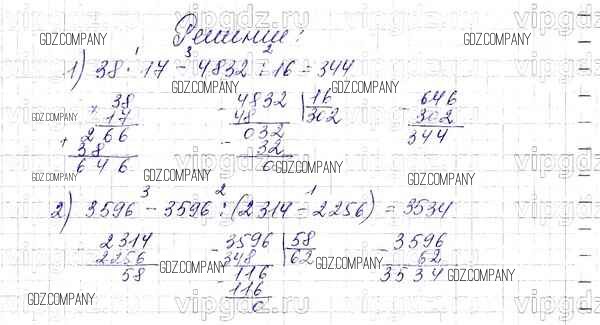 Решение:
1) 38 · 17 - 4832 : 16 = 344
1 3 2
× 38
17
+ 266
38
646
- 4832 | 16
48 302
032
- 32
0
- 646
302
344
2) 3596 - 3596 : (2314 - 2256) = 3534
3 2 1
- 2314
2256
58
- 3596 | 58
348 62
- 116
116
0
- 3596
62
3534
GDZ.COMPANY
GDZ.COMPANY
GDZ.COMPANY
GDZ.COMPANY
GDZ.COMPANY
GDZ.COMPANY
GDZ.COMPANY
GDZ.COMPANY
GDZ.COMPANY
GDZ.COMPANY
GDZ.COMPANY
GDZ.COMPANY
GDZ.COMPANY
vipgdz.ru
vipgdz.ru
vipgdz.ru
vipgdz.ru